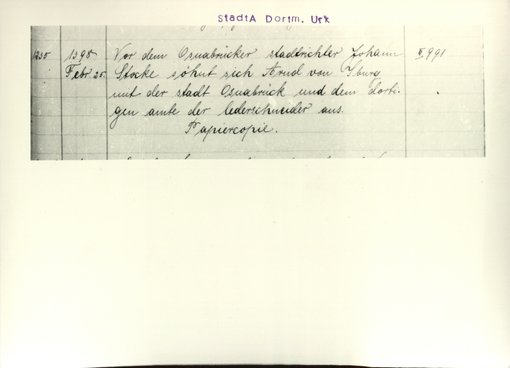 StadtA Dortm. Urk
1235. 1398 Vor dem Osnabrücker stadtrichter Johann II, 991
Febr. 25. Stocke söhnt sich Arnd von Iburg
mit der stadt Osnabrück und dem dorti-
gen amte der lederschneider aus.
Papiercopie.